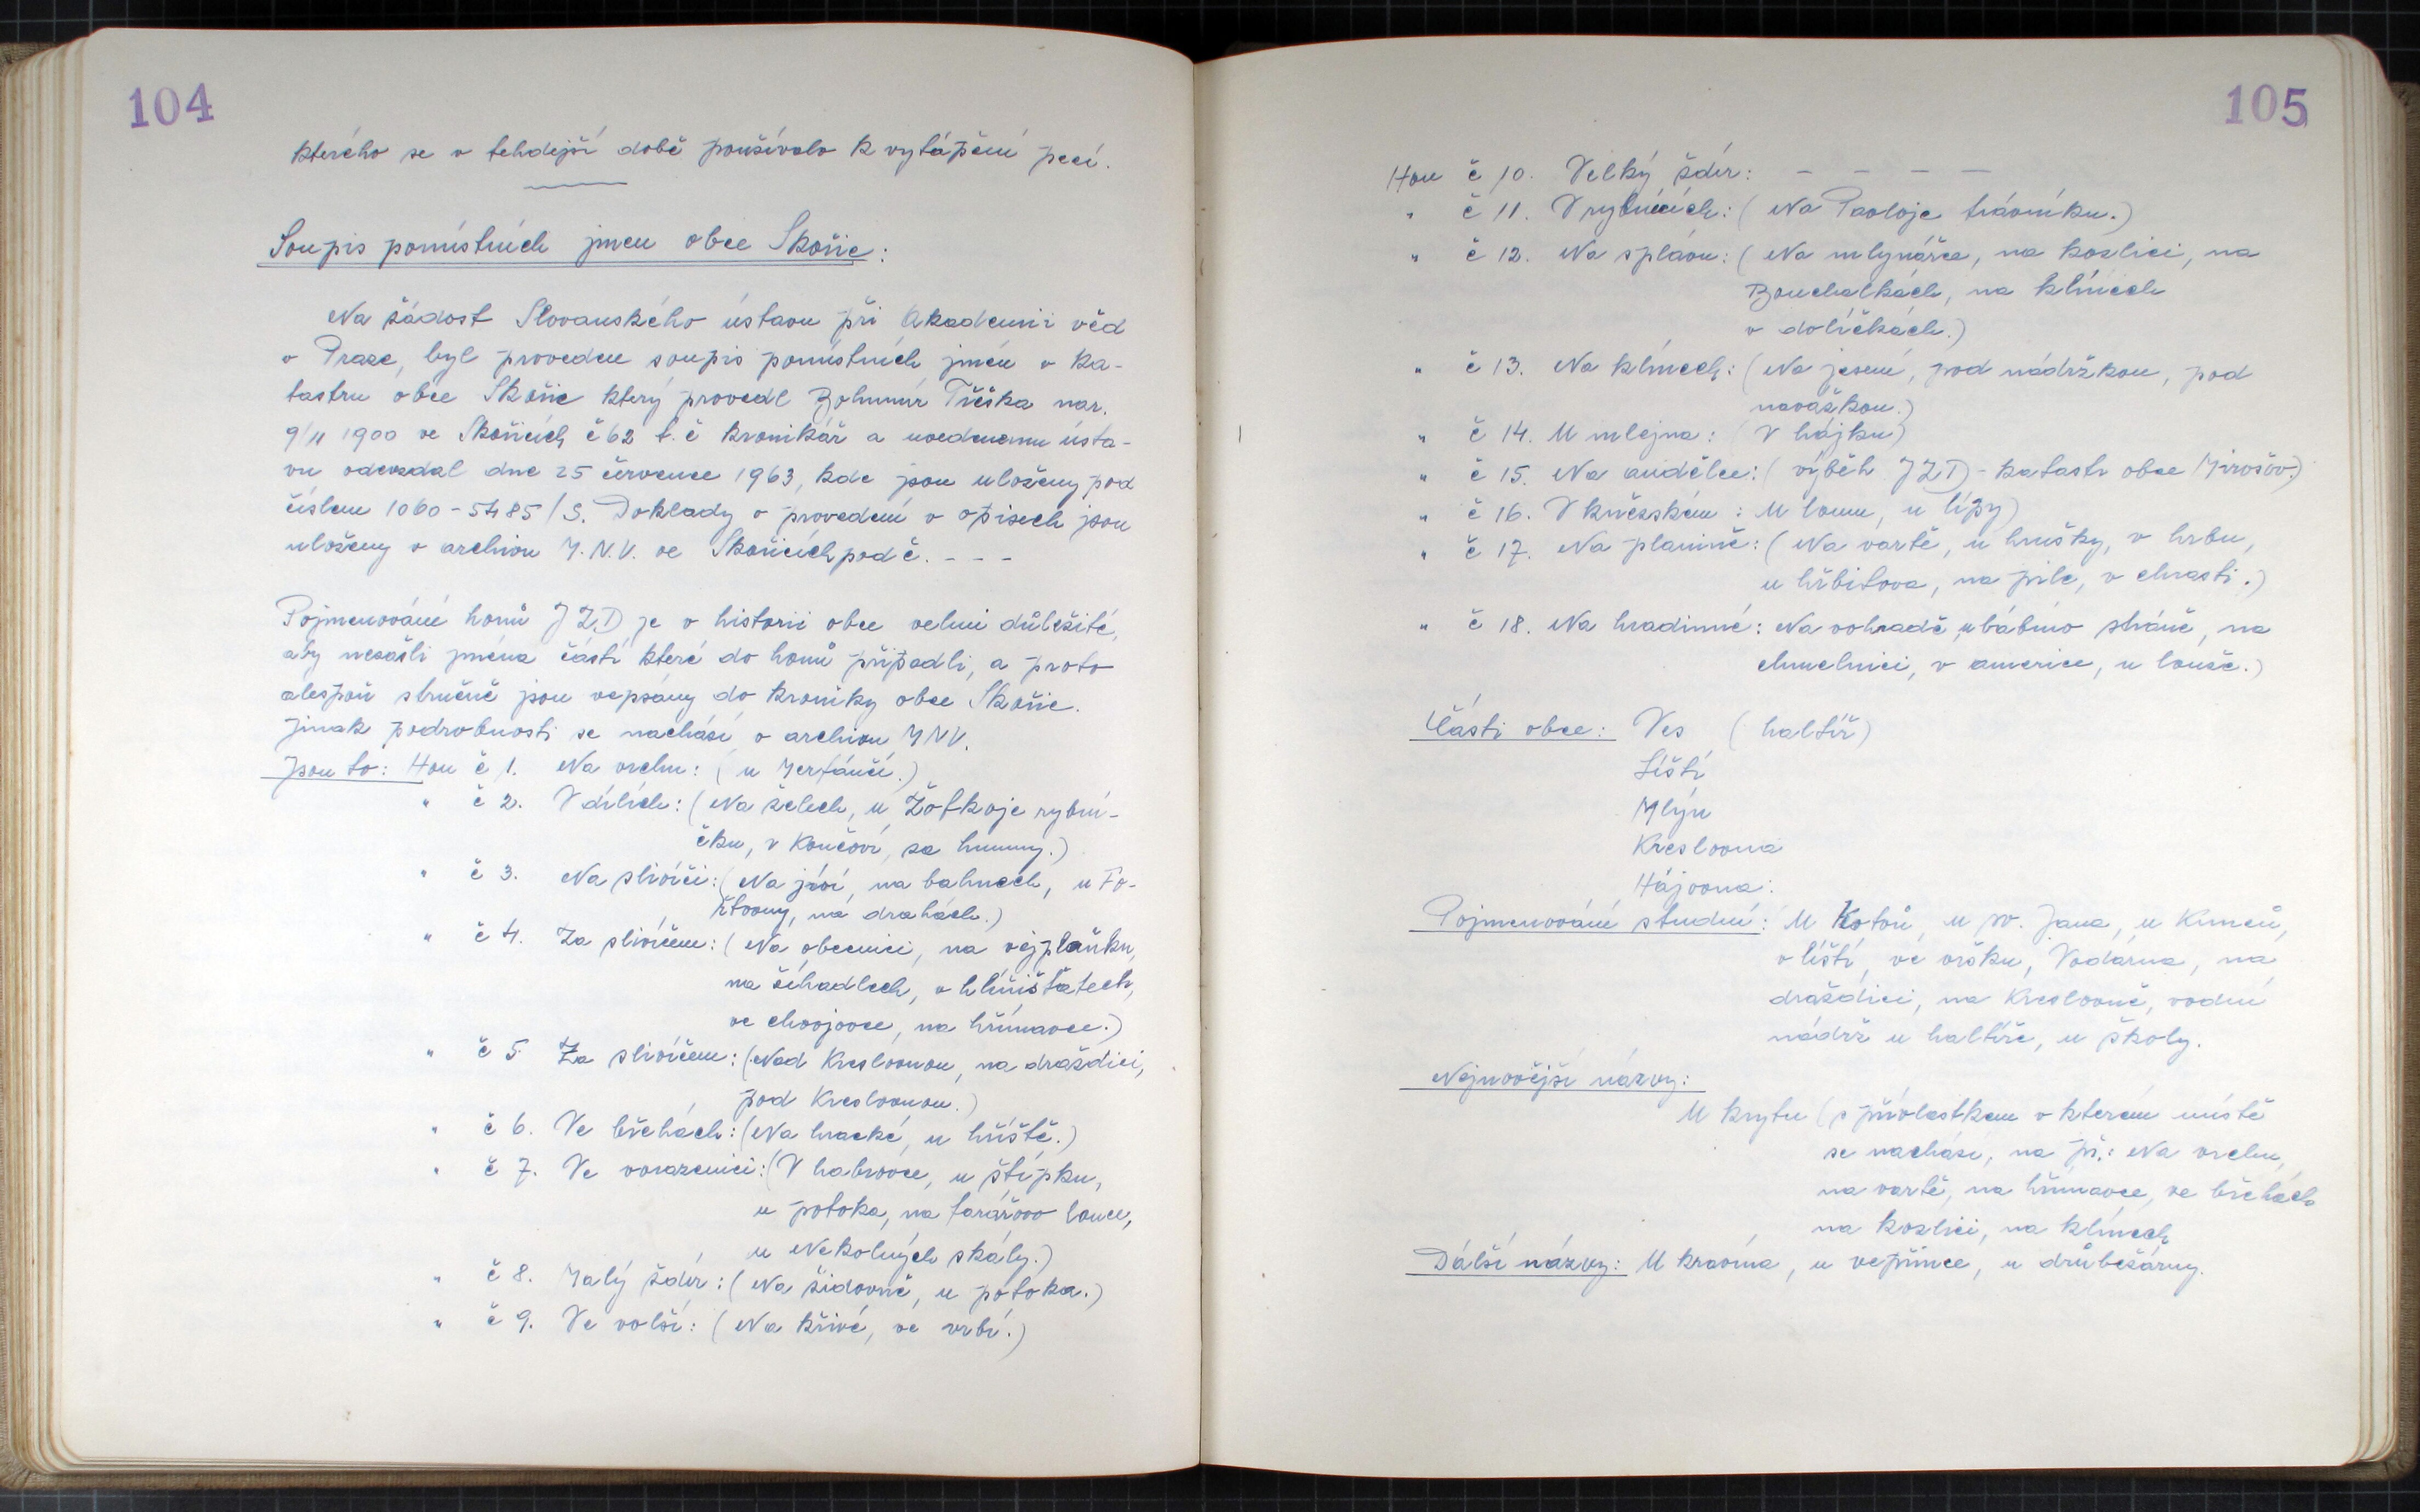 104
kterého se v tehdejší době používalo k vytápění pecí.
Soupis pomístních jmen obce Skořic:
Na žádost Slovanského ústavu při Akademii věd
v Praze, byl proveden soupis pomístních jmén v ka-
tastru obce Skořic který provedl Bohumír Tříska nar.
9/11 1900 ve Skořicích č 62 t. č kronikář a uvedenému ústa-
vu odevzdal dne 25 července 1963, kde jsou uloženy pod
číslem 1060 - 5485/S. Doklady o provedení v opisech jsou
uloženy v archivu M.N.V. ve Skořicích pod č. - - -
Pojmenování honů JZD je v historii obce velmi důležité,
aby nezašli jména částí které do honů připadli, a proto
alespoň stručně jsou vepsány do kroniky obce Skořic.
Jinak podrobnosti se nachází v archivu MNV.
Jsou to: Hon č 1. Na vrchu: (u Merfánčí.)
" č 2. V dílích: (Na želech, u Žofkoje rybní-
čku, v Končoví, za humny.)
" č 3. Na slivíčí: (Na jíví, na bahnech, u Fo-
štovny, na drahách.)
" č 4. Za slivíčem: (Na obecnici, na vejplaňku,
na číhadlech, v hliništatech,
ve chvojovce, na hřímavce.)
" č 5 Za slivíčem: (Nad Kreslovnou, na draždici,
pod Kreslovnou.)
" č 6. Ve břehách: (Na hracké, u hříště.)
" č 7. Ve vorazenici: (V habrovce, u štípku,
u potoka, na farářovo louce,
u Nekolných skály.)
" č 8. Malý žďír: (Na židovně, u potoka.)
" č 9. Ve volší: (Na křivé, ve vrbí.)
105
Hon č 10. Velký žďír: - - - -
" č 11. V rybnících: (Na Pavloje trávníku.)
" č 12. Na splávu: (Na mlynářce, na kozlici, na
Bouchalkách, na klínech
v dolíčkách.)
" č 13. Na klínech: (Na jesení, pod nádržkou, pod
navážkou.)
" č 14. U mlejna: V hájku)
" č 15. Na andělce: (výběh JZD - katastr obce Mirošov.)
" č 16. V kněžském: U lomu, u lípy)
" č 17. Na planině: (Na vartě, u hrušky, v hrbu,
u hřbitova, na pile, v chrasti.)
" č 18. Na hradinné: Na vohradě, u bábíno stráně, na
chmelnici, v americe, u louže.)
Části obce: Ves (haltíř)
Líští
Mlýn
Kreslovna
Hájovna:
Pojmenování studní: U Kotoů, u sv. Jana, u Kuneů,
v líští, ve vršku, Vodárna, na
draždici, na Kreslovně, vodní
nádrž u haltíře, u školy.
Nejnovější názvy:
U krytu (s přívlastkem v kterém místě
se nachází, na př.: Na vrchu,
na vartě, na hřímavce, ve břehách
na kozlici, na klínech
Dálší názvy: U kravína, u vepřínce, u drůbežárny.